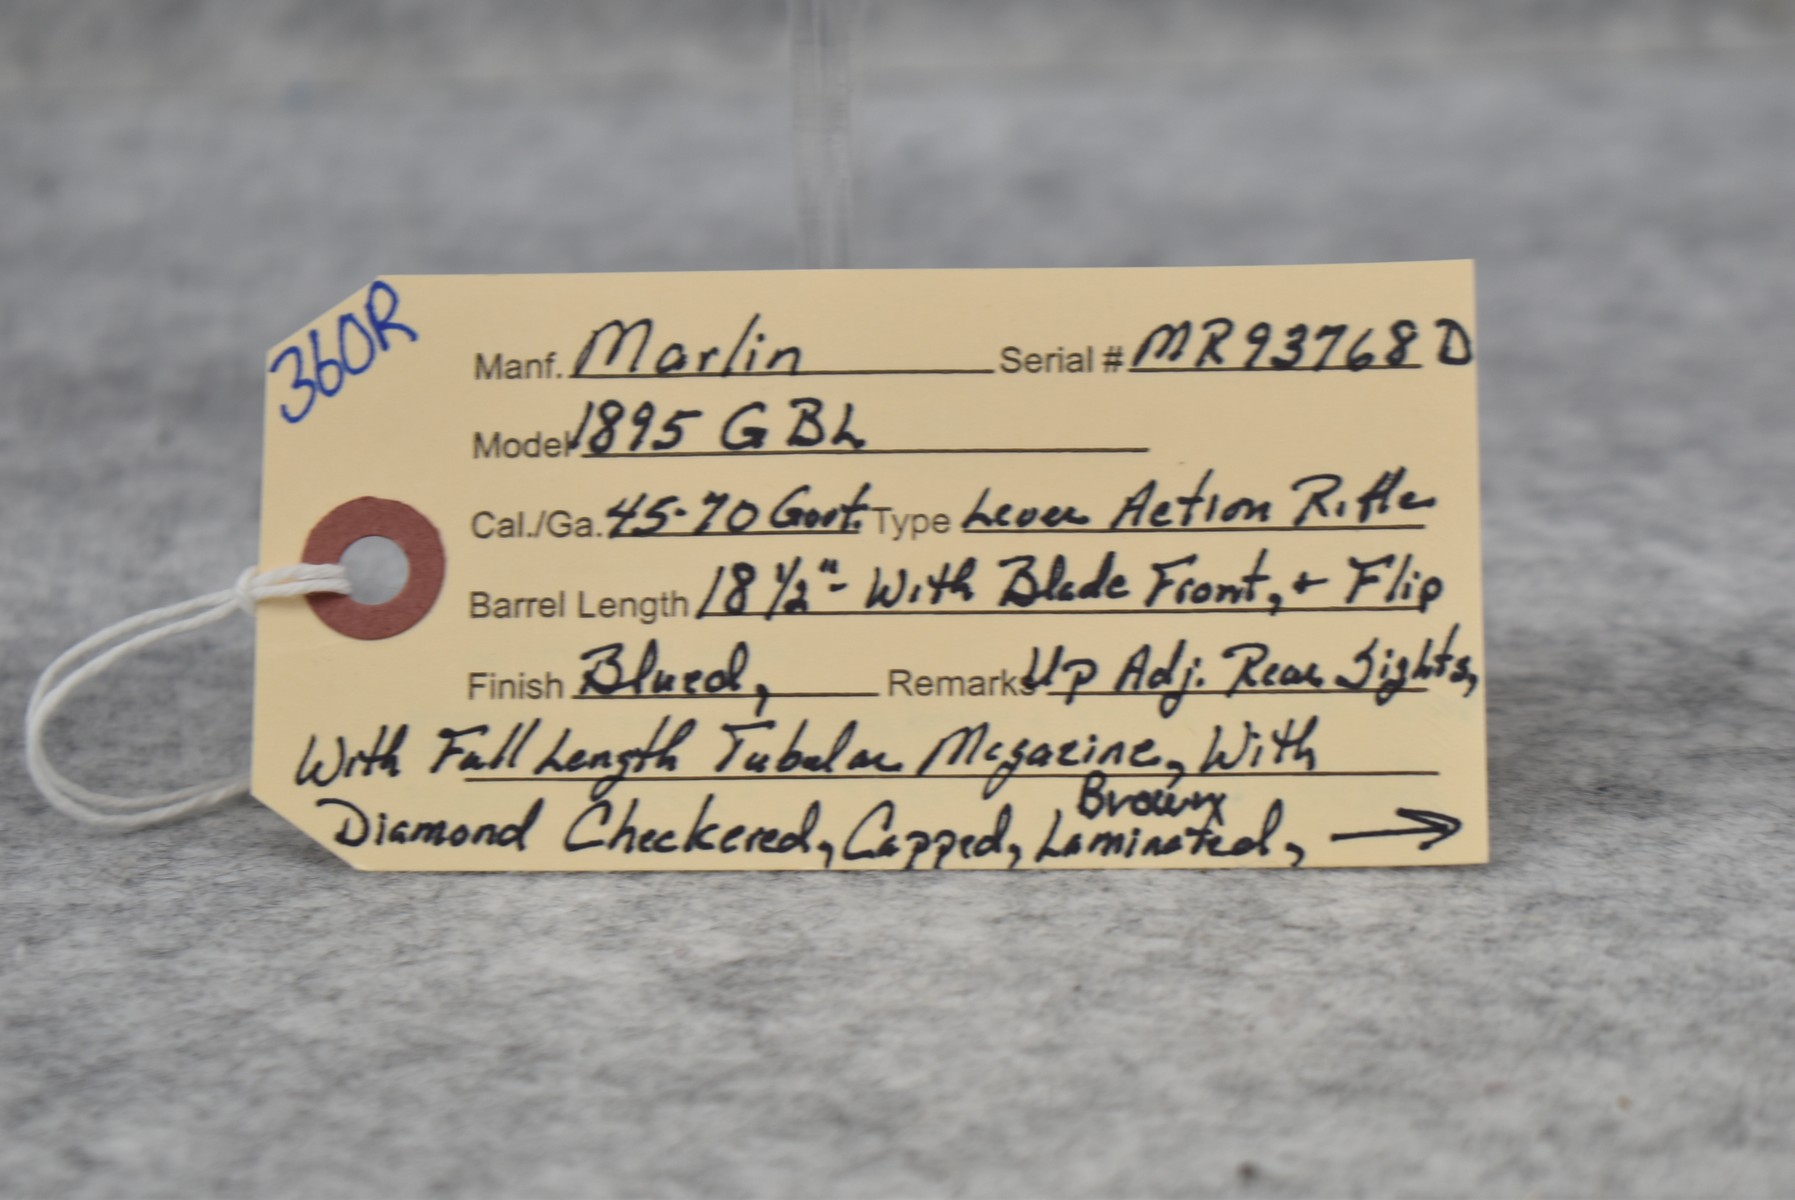 360R
Manf. Marlin Serial # MR93768D
Model 1895 GBL
Cal./Ga. 45-70 Govt. Type Lever Action Rifle
Barrel Length 18 1/2"- With Blade Front, + Flip
Finish Blued, Remarks Up Adj. Rear Sights,
With Full Length Tubular Magazine, With
Brown
Diamond Checkered, Capped, Laminated, →